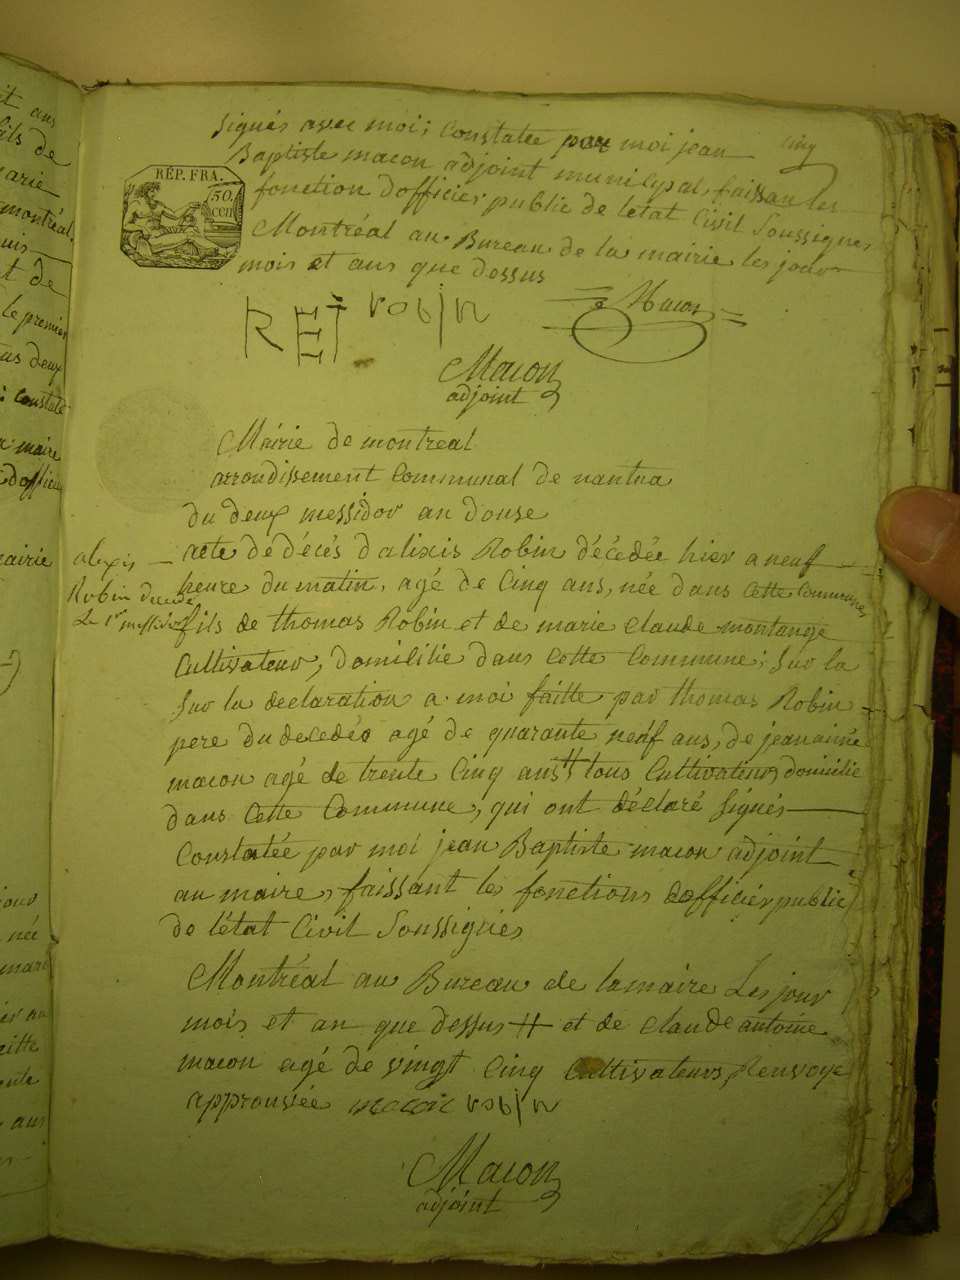 signés avec moi; Constatée par moi jean
cinq
Baptiste macon adjoint municipal, faisant les
fonction d'officier public de l'état Civil Soussignes
Montréal au Bureau de la mairie les jour
mois et ans que dessus
RÉP. FRA.
50.
cen
REI robin Macon
Macon
adjoint
Mairie de montreal
arrondissement Communal de nantua
du deux messidor an douse
acte de décés d'alixis Robin décédée hier a neuf
heure du matin, agé de Cinq ans, née dans Cette Commune
fils de thomas Robin et de marie Claude montange
Cultivateur, domicilie dans Cette Commune; Sur la
Sur la declaration a moi faitte par thomas Robin
pere du decedéé agé de quarante neuf ans, de jean aimé
macon agé de trente Cinq ans # tous Cultivateurs domicilie
dans Cette Commune, qui ont déclaré Signés
Constatée par moi jean Baptiste macon adjoint
au maire, faissant les fonctions d'officier public
de l'état Civil Soussignés
Montréal au Bureau de lamaire Les jour
mois et an que dessus # et de Claude antoine
macon agé de vingt Cinq Cultivateurs, Renvoye
approuvée macon robin
Macon
adjoint
alexis
Robin decede
Le 1er messidor
it ans
fils de
marie
montréal
t de
le premier
deux
constaté
maire
d'officier
mairie
née
ans